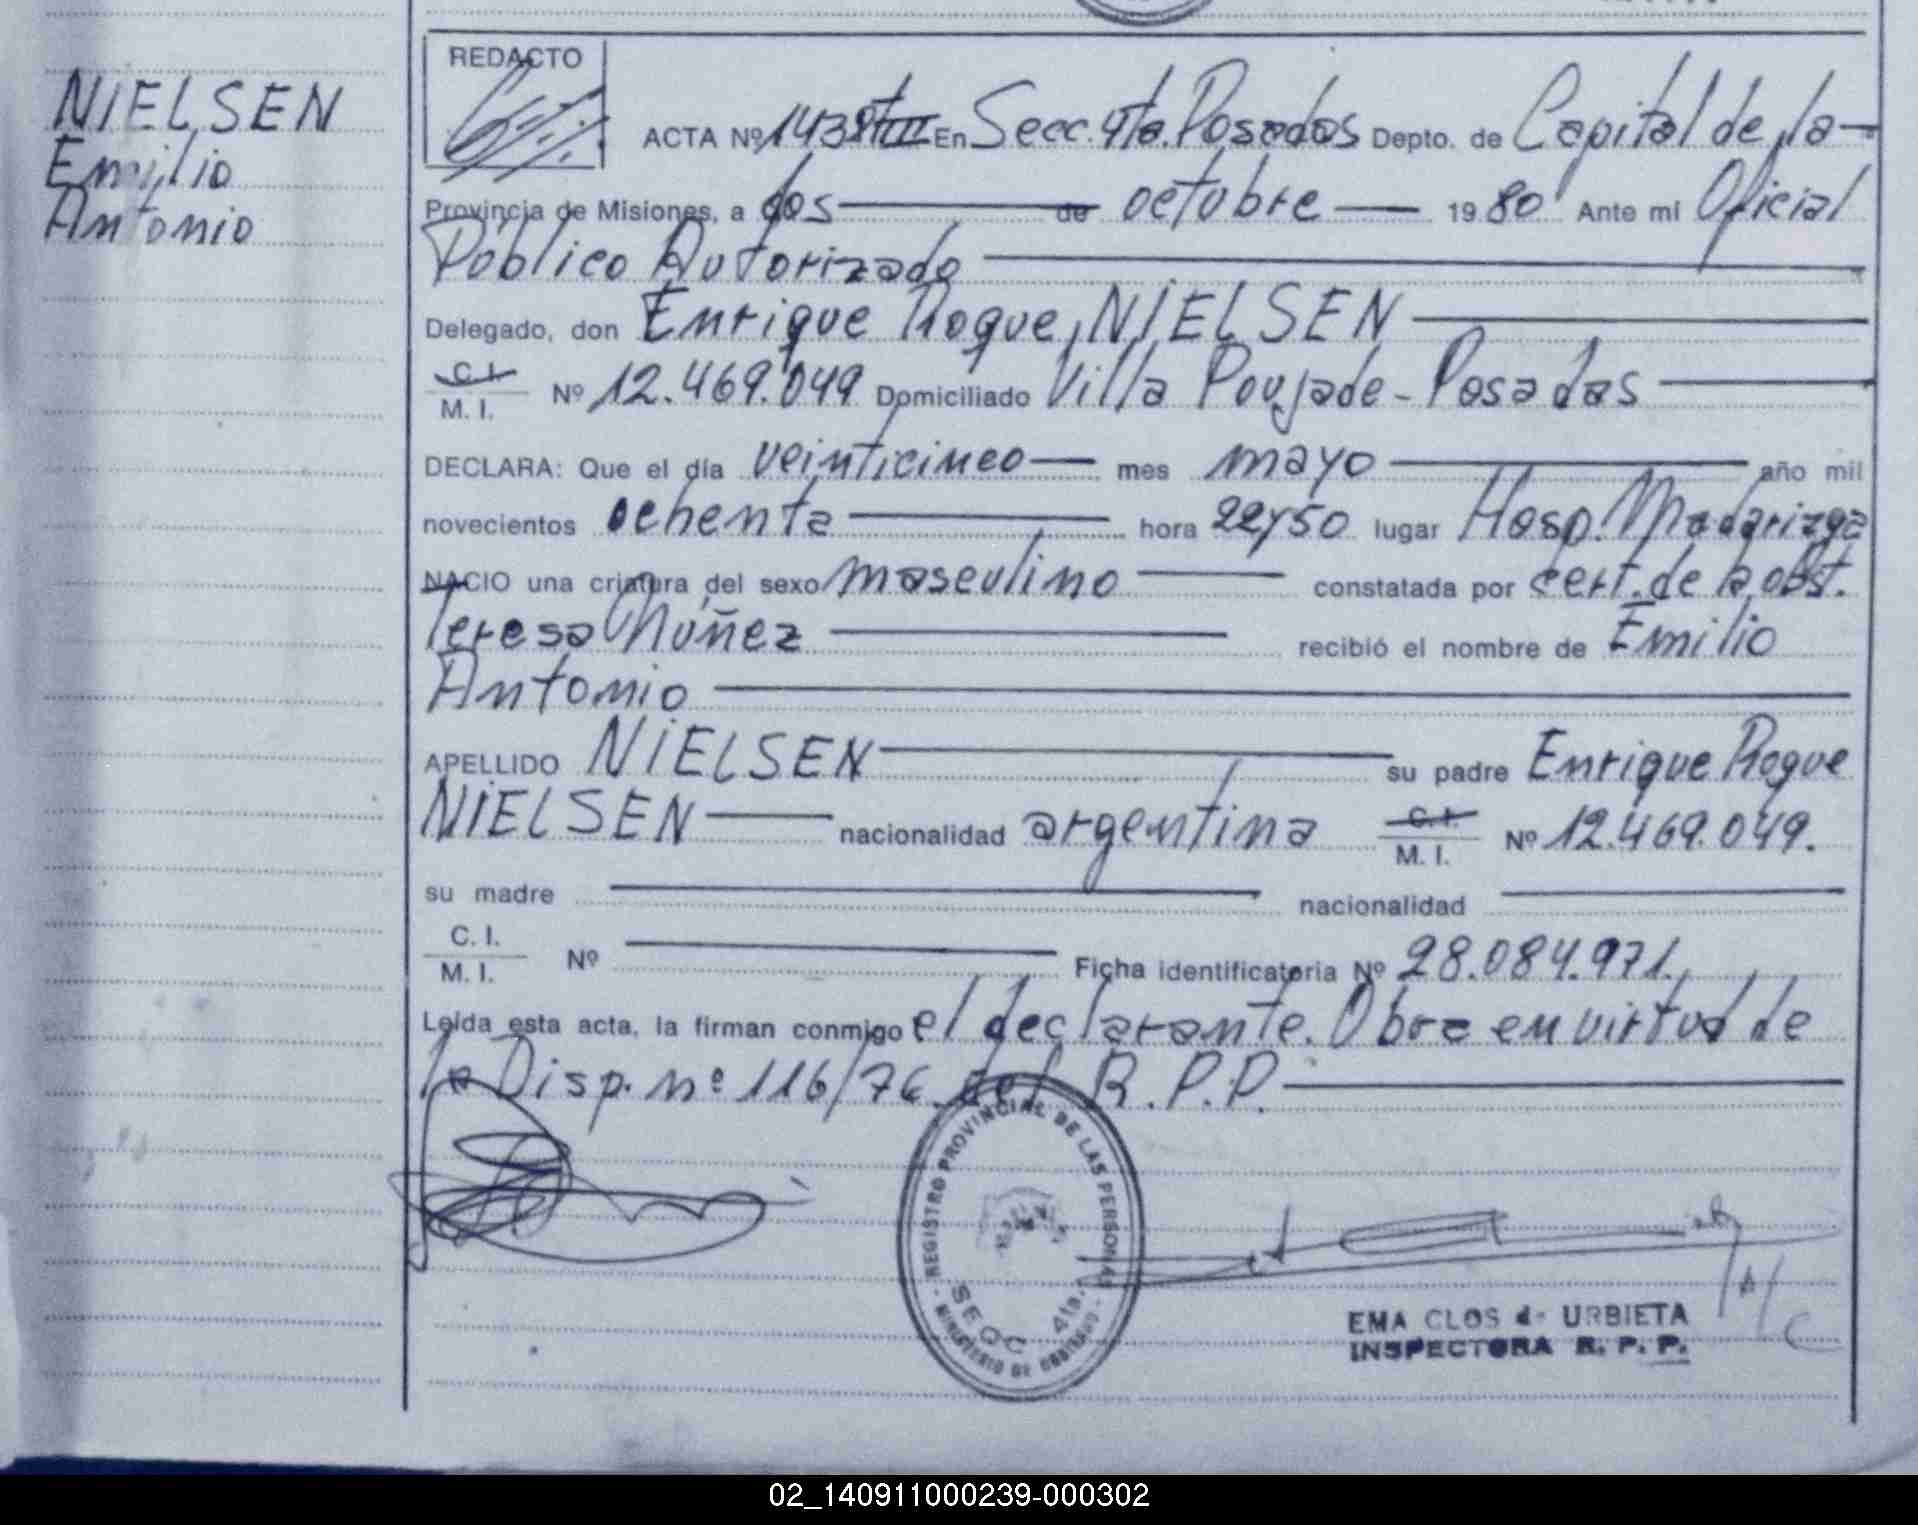 NIELSEN
Emilio
Antonio
REDACTO
ACTA Nº 1438 En Secc. 4ta. Posadas Depto. de Capital de la
Provincia de Misiones, a dos de octubre 1980 Ante mi Oficial
Público Autorizado
Delegado, don Enrique Roque NIELSEN
C. I.
M. I. Nº 12.469.049 Domiciliado Villa Poujade - Posadas
DECLARA: Que el día veinticinco mes mayo año mil
novecientos ochenta hora 22y50 lugar Hosp. Madariaga
NACIO una criatura del sexo masculino constatada por cert. de la obst.
Teresa Núñez recibió el nombre de Emilio
Antonio
APELLIDO NIELSEN su padre Enrique Roque
NIELSEN nacionalidad argentina C. I. M. I. Nº 12.469.049.
su madre nacionalidad
C. I.
M. I. Nº Ficha identificatoria Nº 28.084.971.
Leída esta acta, la firman conmigo el declarante. Obra en virtud de
la Disp. nº 116/76 del R.P.P.
REGISTRO PROVINCIAL DE LAS PERSONAS
SECC 4ta.
MINISTERIO DE GOBIERNO
EMA CLOS de URBIETA
INSPECTORA R. P. P.
02_140911000239-000302